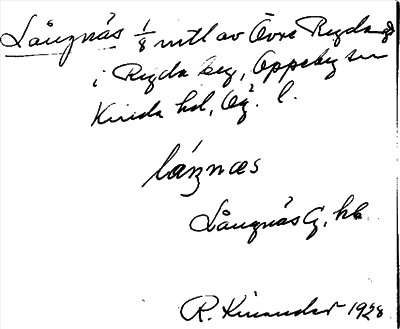 Långnäs 1/8 mtl av Övre Rygda
i Rygda by, Oppeby sn
Kinda hd, Ög. l.
lánznæs
Långnäs G, hk
R. Kinander 1928